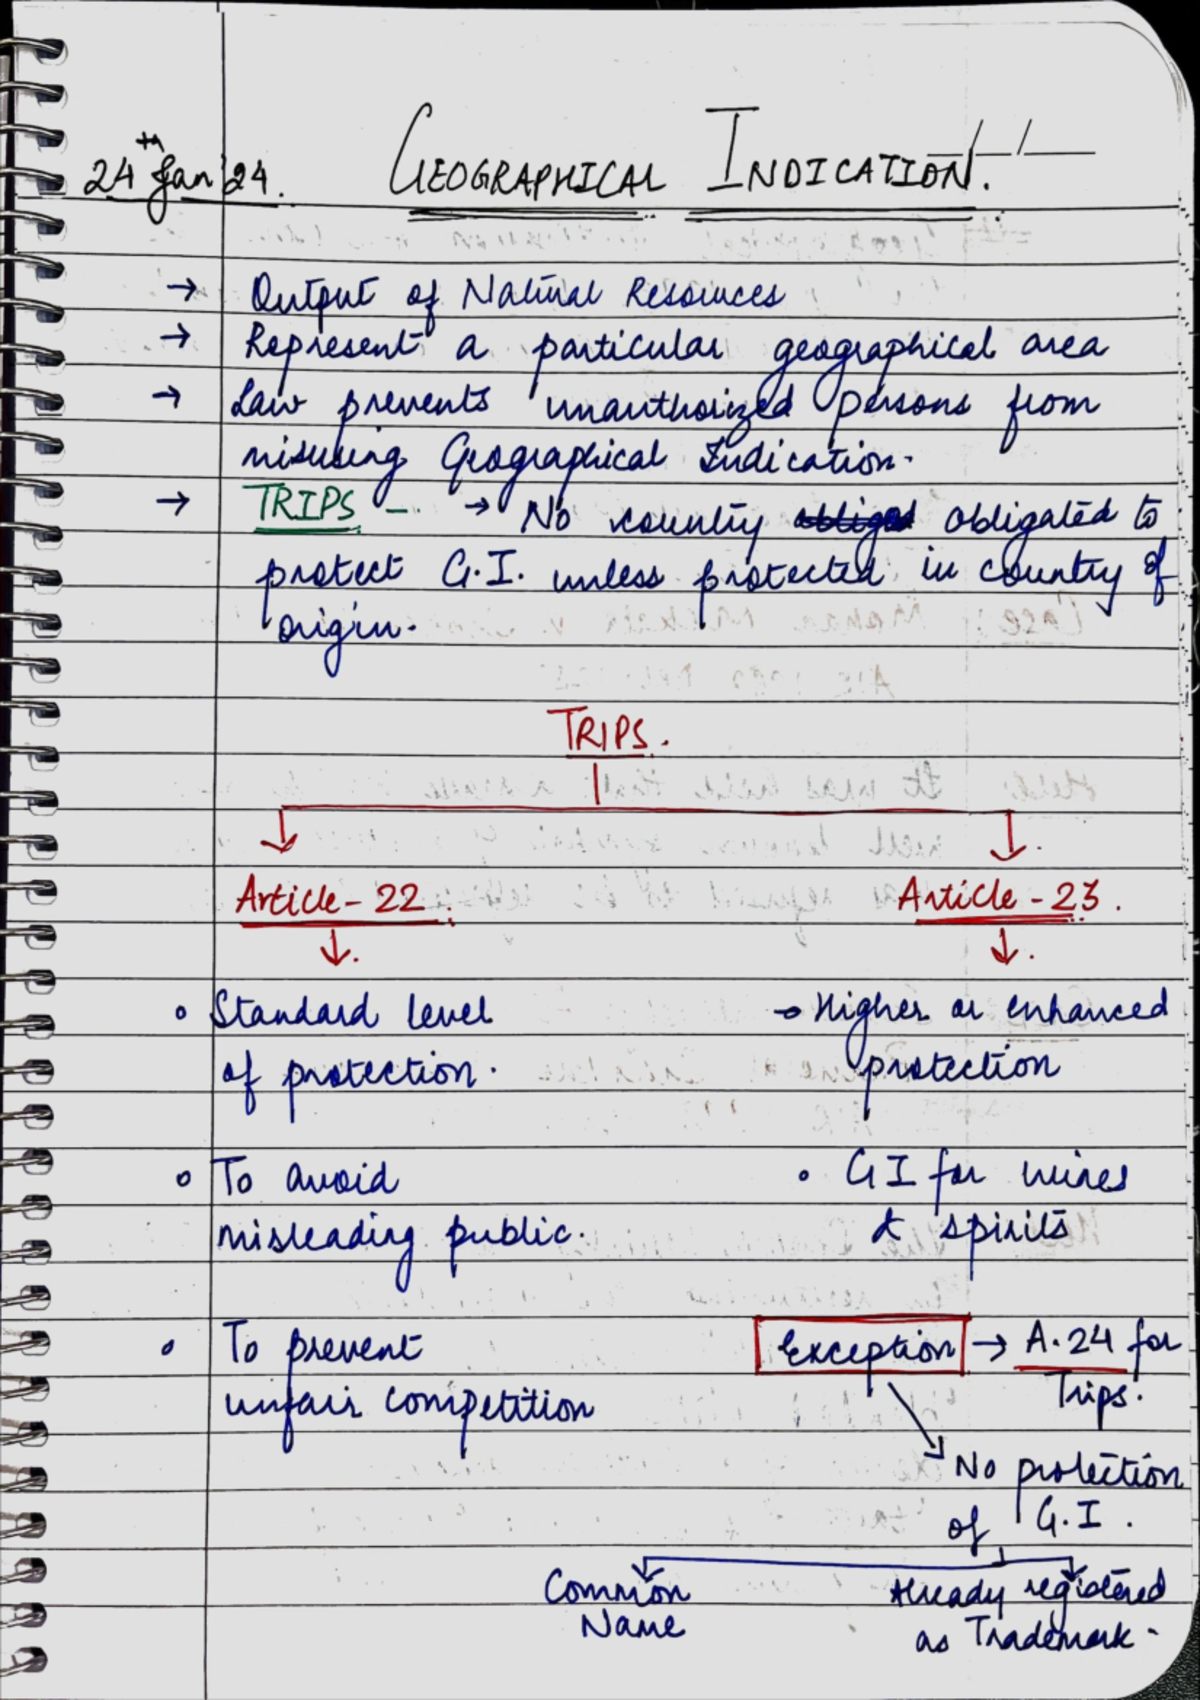 24th Jan'24.
GEOGRAPHICAL INDICATION.
→ Output of Natural Resources
→ Represent a particular geographical area
→ Law prevents unauthorized persons from
misusing Geographical Indication.
→ TRIPS - → No country obligated to
protect G.I. unless protected in country of
origin.
TRIPS.
Article - 22.
Article - 23.
Standard level
of protection.
Higher or enhanced
protection
To avoid
misleading public.
GI for wines
& spirits
To prevent
unfair competition
Exception → A.24 for
Trips.
No protection
of G.I.
Common
Name
Already registered
as Trademark.